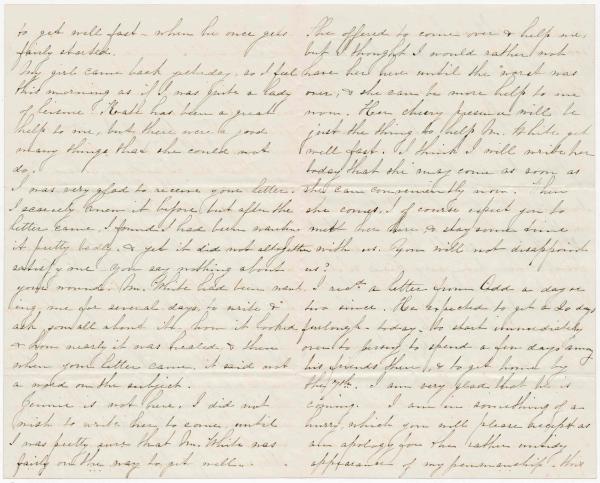 to get well fast - when he once gets
fairly started.
My girl came back yesterday, so I feel
this morning as if I was quite a lady
of leisure! has been a great
help to me, but there were a good
many things that she could not
do.
I was very glad to receive your letter.
I scarcely knew it before but after the
letter came, I found I had been wanting
it pretty badly. & yet it did not altogether
satisfy me. You say nothing about
your wound. Mr. White had been want
ing me for several days, to write &
ask you all about it, how it looked
& how nearly it was healed. & then
when your letter came, it said not
a word on the subject.
Jennie is not here. I did not
wish to write her to come, until
I was pretty sure that Mr. White was
fairly on the way to get well -
She offered to come over & help me,
but I thought I would rather not
have her here until the worst was
over, & she can be more help to me
now. Her cheery presence will be
just the thing to help Mr. White get
well fast. I think I will write her
today that she may come as soon as
she can conveniently now. When
she comes, I of course expect you to
meet her here & stay some time
with us. You will not disappoint
us?
I recd. a letter from Add a day or
two since. He expected to get a 20 days
furlough - today. to start immediately
over to to spend a few days among
his friends there, & to get home by
the 7th. I am very glad that he is
coming. I am in something of a
hurry, which you will please accept as
an apology for the rather untidy
appearance of my penmanship.